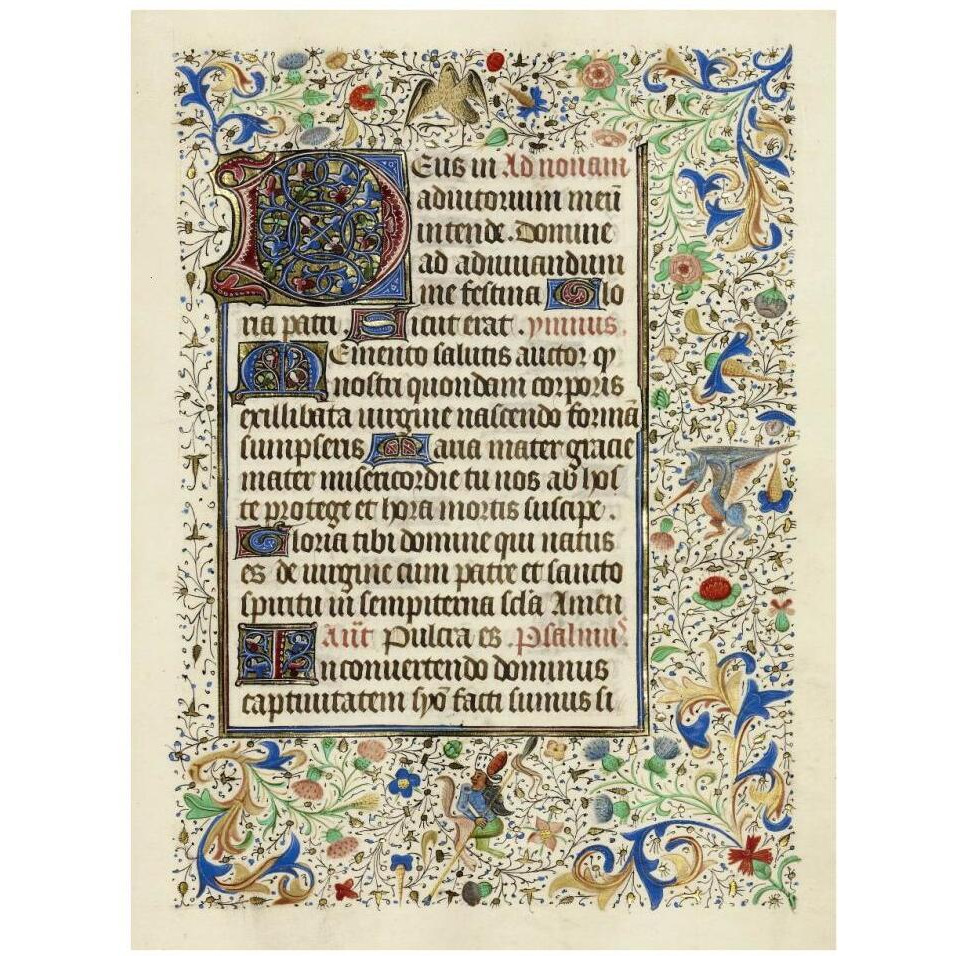 Deus in Ad nonam
adiutorium meū
intende. Domine
ad adiuuandum
me festina Glo
ria patri. Sicut erat. ymnus.
Memento salutis auctor q
nostri quondam corporis
exillibata uirgine nascendo formā
sumpseris Maria mater gracie
mater misericordie tu nos ab hos
te protege et hora mortis suscipe.
Gloria tibi domine qui natus
es de uirgine cum patre et sancto
spiritu in sempiterna scl̄a Amen
Añt Pulcra es. Psalmus.
In conuertendo dominus
captiuitatem syō facti sumus si